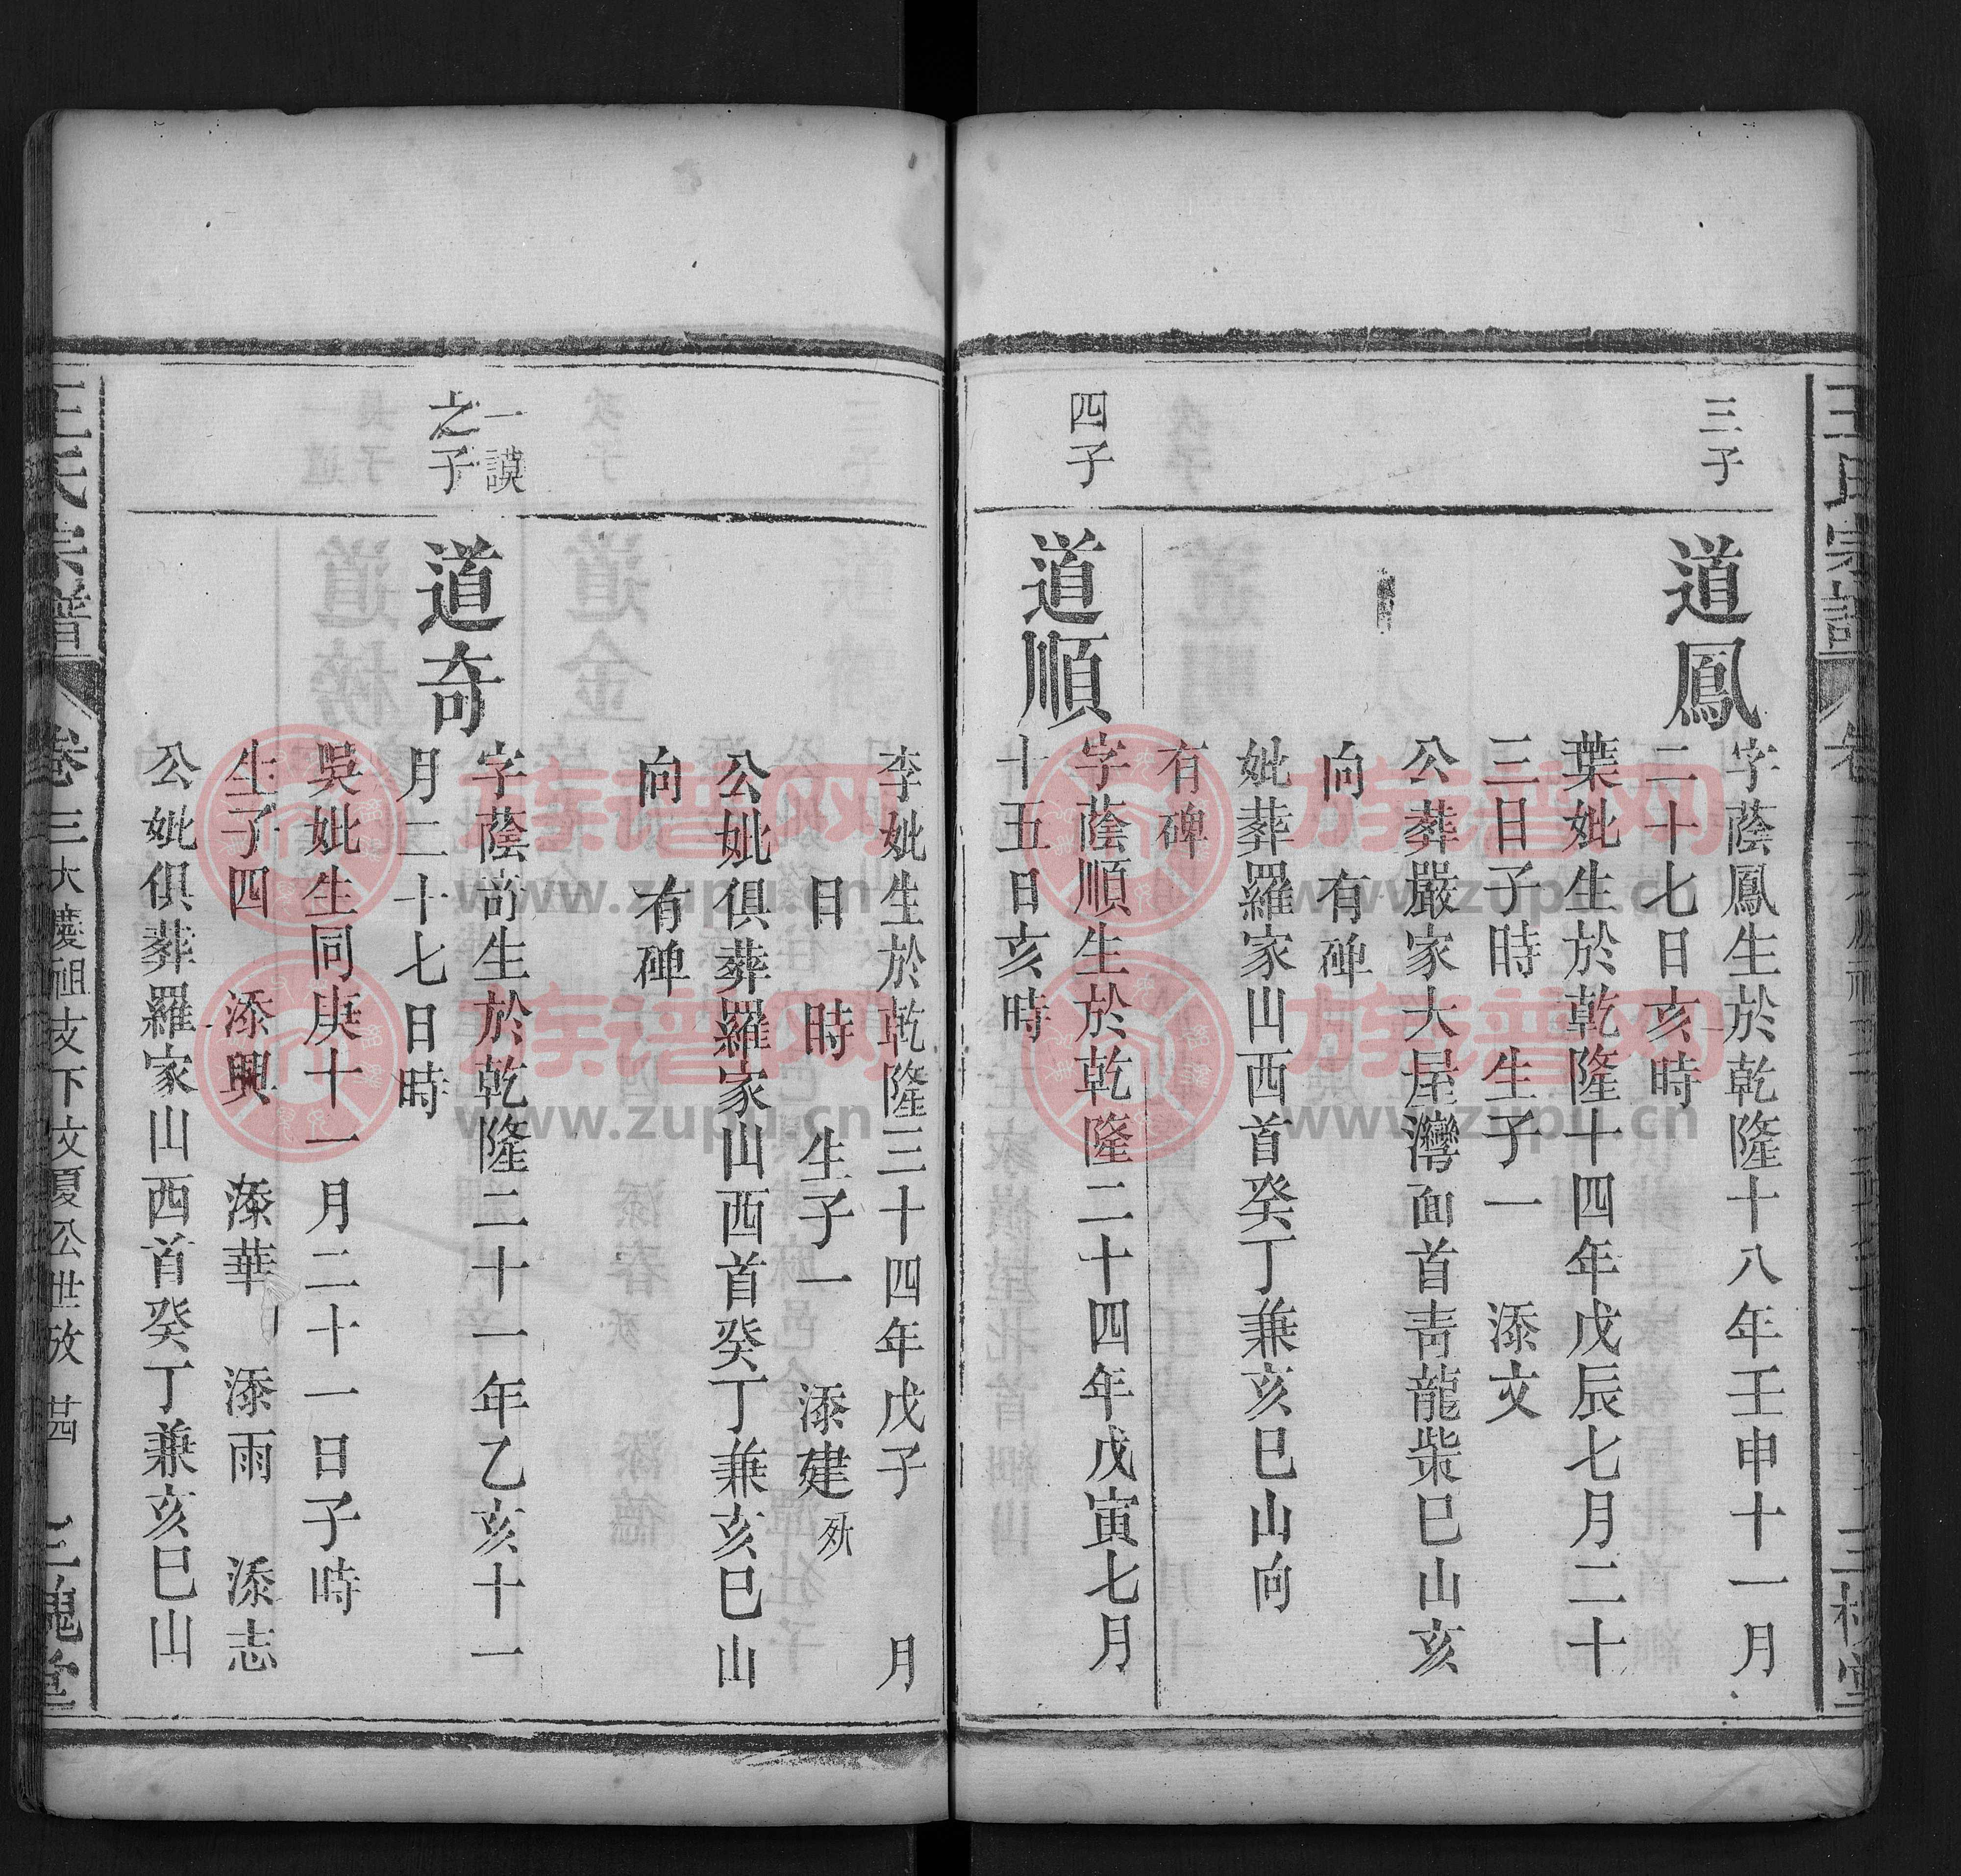 三子
道鳳
字蔭鳳生於乾隆十八年壬申十一月
二十七日亥時
葉妣生於乾隆十四年戊辰七月二十
三日子時 生子一 添文
公葬嚴家大屋灣面首靑龍柴巳山亥
向 有碑
妣葬羅家山西首癸丁兼亥巳山向
有碑
四子
道順
字蔭順生於乾隆二十四年戊寅七月
十五日亥時
李妣生於乾隆三十四年戊子 月
日 時 生子一 添建殀
公妣俱葬羅家山西首癸丁兼亥巳山
向 有碑
一謨
之子
道奇
字蔭奇生於乾隆二十一年乙亥十一
月二十七日時
吳妣生同庚十一月二十一日子時
生子四 添興 添華 添雨 添志
公妣俱葬羅家山西首癸丁兼亥巳山
王氏宗譜 卷三 大慶祖支下文夏公世攷 廿四 三槐堂
族譜网
www.zupu.cn
族譜网
www.zupu.cn
族譜网
www.zupu.cn
族譜网
www.zupu.cn